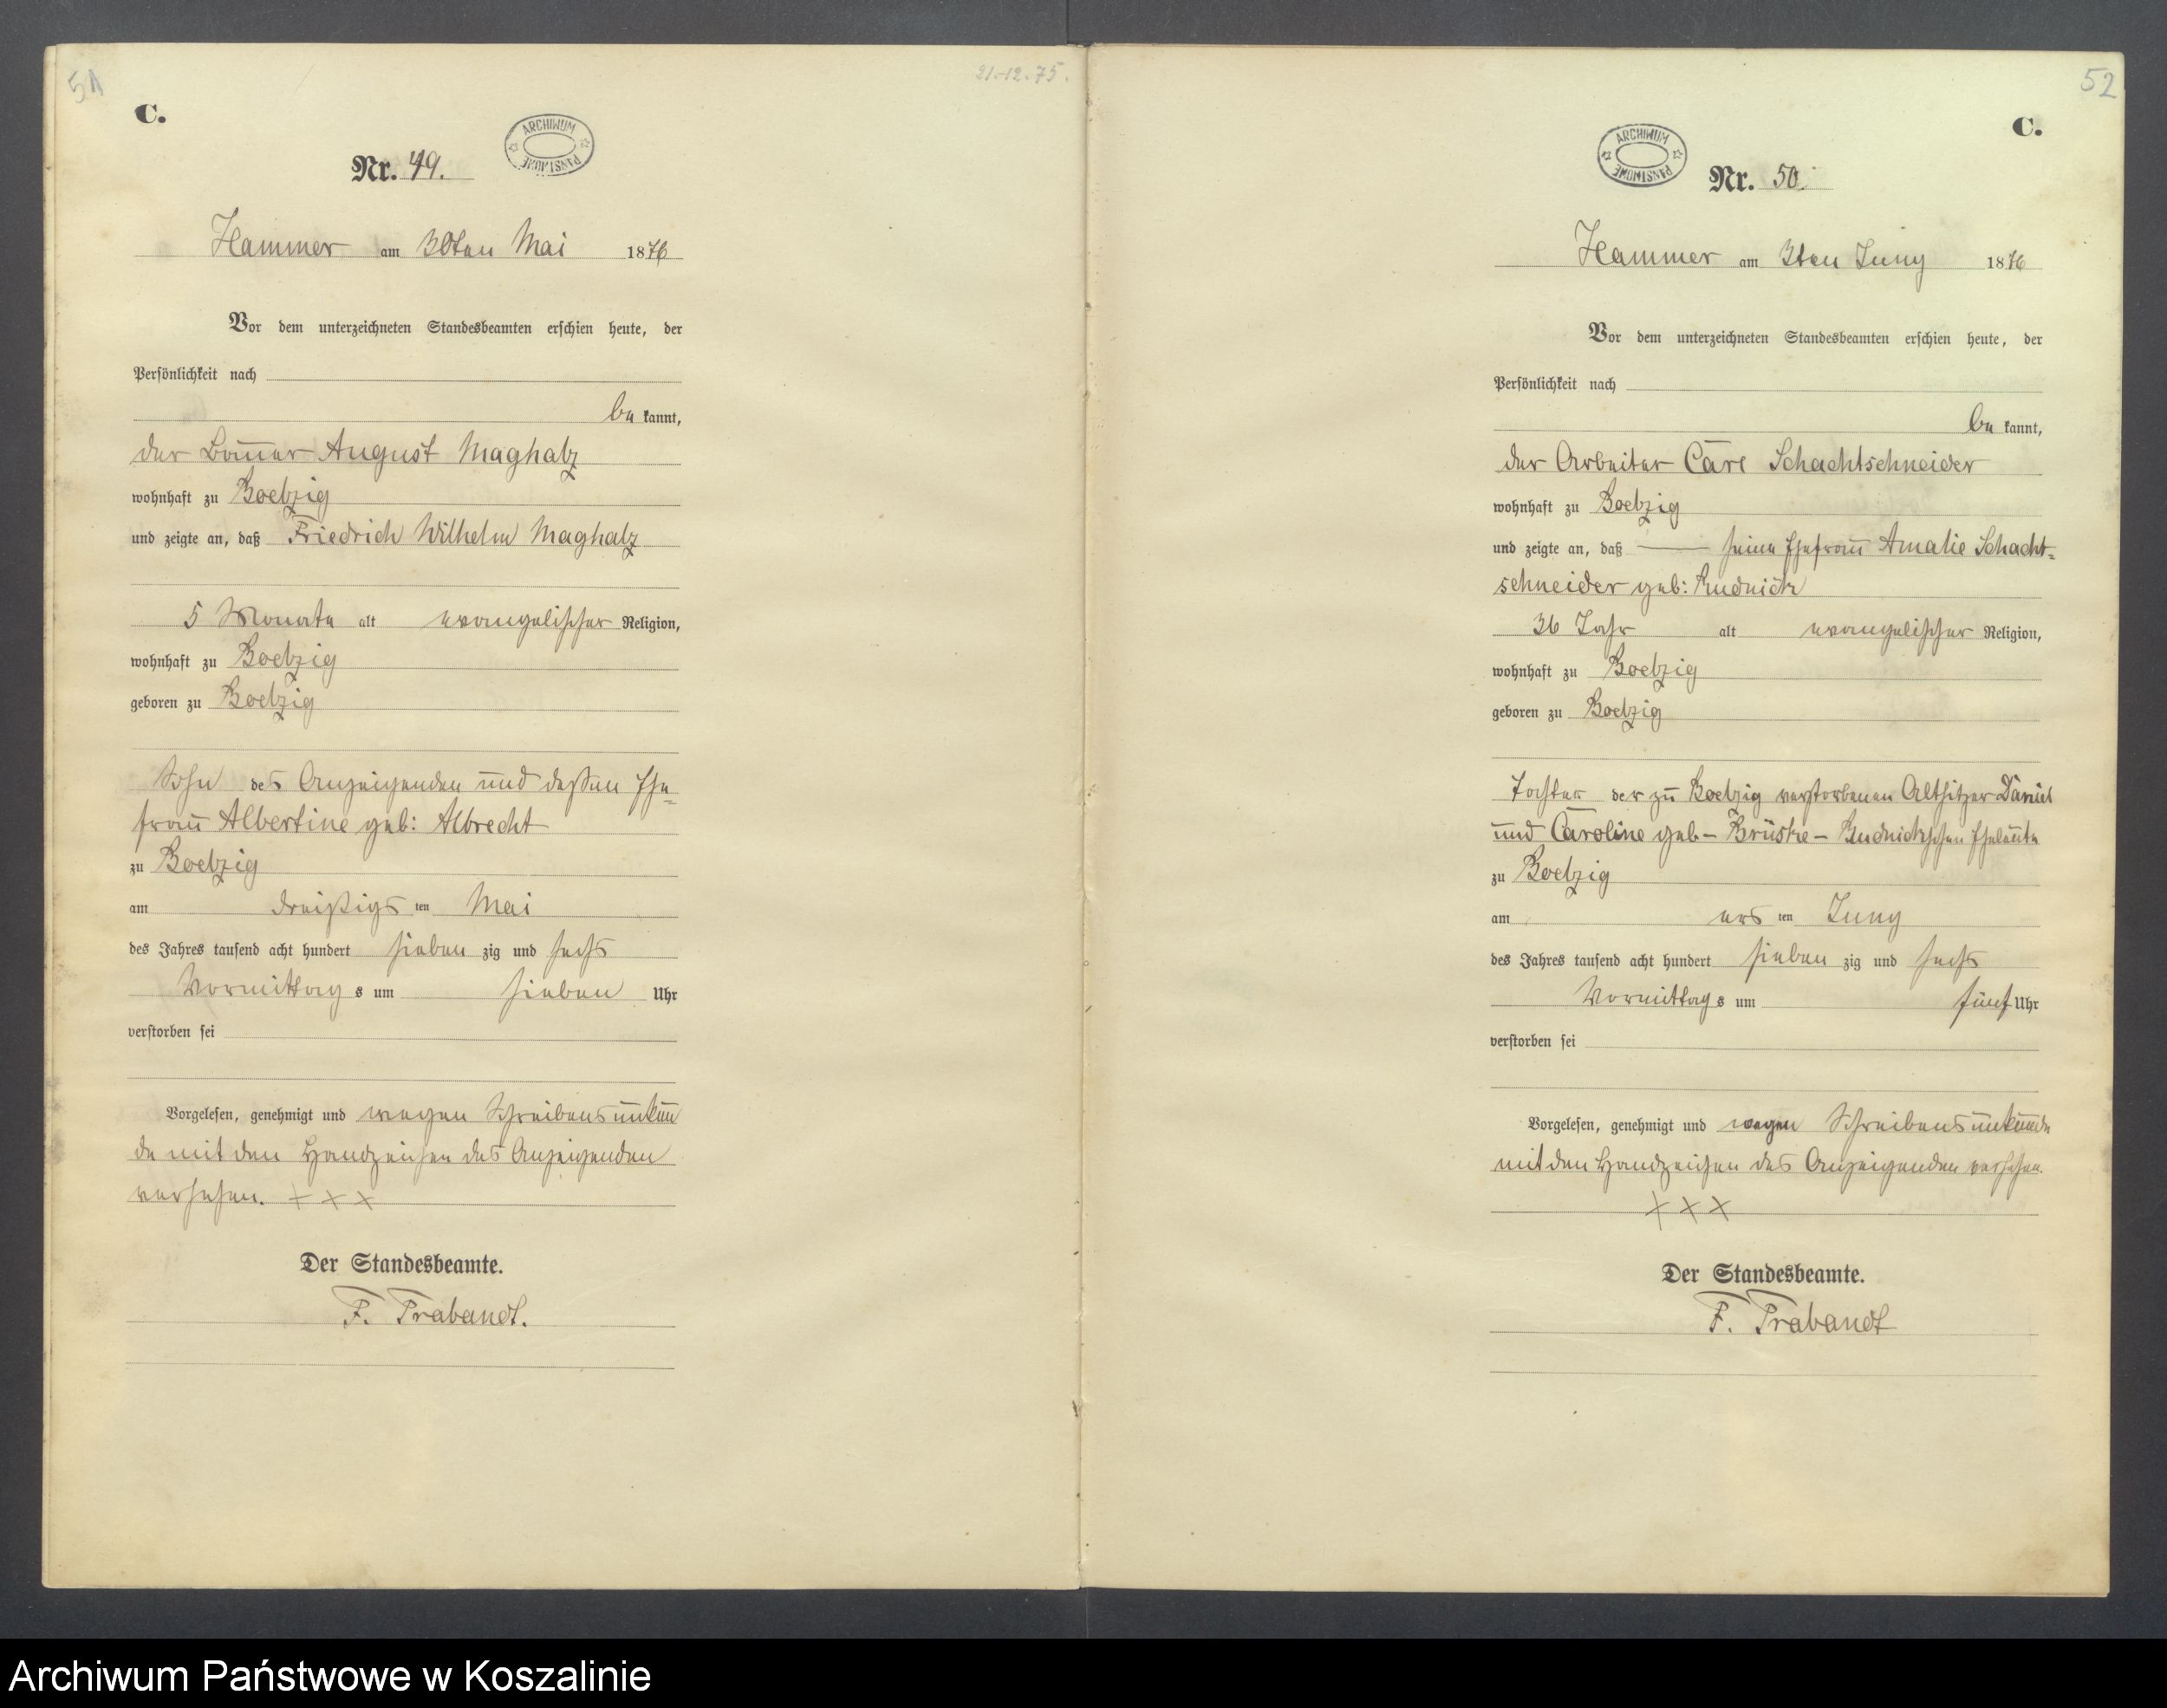 51
21.-12.75.
C.
ARCHIWUM PAŃSTWOWE
Nr. 49.
Hammer am 30ten Mai 1876
Vor dem unterzeichneten Standesbeamten erschien heute, der
Persönlichkeit nach
be kannt,
der Bauer August Maghalz
wohnhaft zu Boetzig
und zeigte an, daß Friedrich Wilhelm Maghalz
5 Monate alt evangelischer Religion,
wohnhaft zu Boetzig
geboren zu Boetzig
Sohn des Anzeigenden und dessen Ehe=
frau Albertine geb: Albrecht
zu Boetzig
am dreißigs ten Mai
des Jahres tausend acht hundert sieben zig und sechs
Vormittag s um sieben Uhr
verstorben sei
Vorgelesen, genehmigt und wegen Schreibensunkun
de mit den Handzeichen des Anzeigenden
versehen. + + +
Der Standesbeamte.
F. Trabandt.
52
C.
ARCHIWUM PAŃSTWOWE
Nr. 50.
Hammer am 3ten Juny 1876
Vor dem unterzeichneten Standesbeamten erschien heute, der
Persönlichkeit nach
be kannt,
der Arbeiter Carl Schachtschneider
wohnhaft zu Boetzig
und zeigte an, daß — seine Ehefrau Amalie Schacht=
schneider geb: Rudnick
36 Jahr alt evangelischer Religion,
wohnhaft zu Boetzig
geboren zu Boetzig
Tochter der zu Boetzig verstorbenen Altsitzer Daniel
und Caroline geb – Brüske – Rudnickschen Eheleute
zu Boetzig
am ers ten Juny
des Jahres tausend acht hundert sieben zig und sechs
Vormittag s um fünf Uhr
verstorben sei
Vorgelesen, genehmigt und wegen Schreibensunkunde
mit den Handzeichen des Anzeigenden versehen.
+ + +
Der Standesbeamte.
F. Trabandt
Archiwum Państwowe w Koszalinie